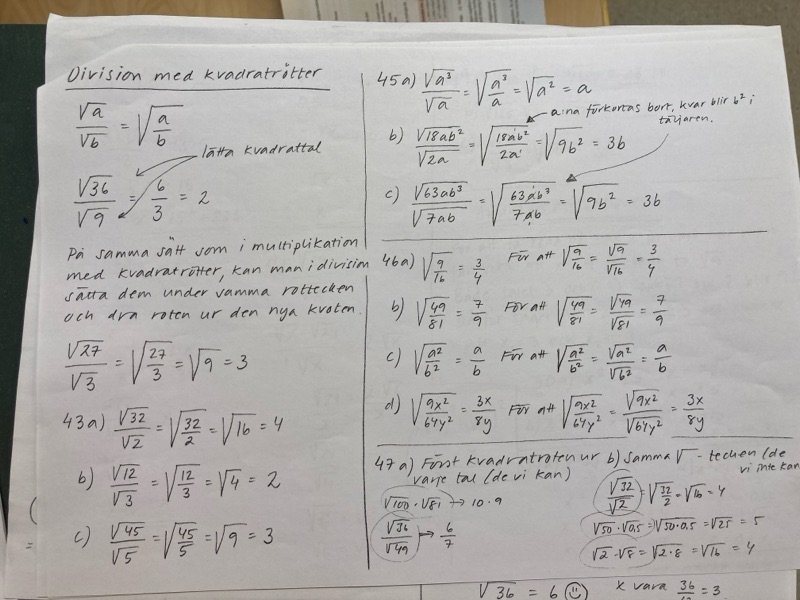 Division med kvadratrötter
√a/√b = √(a/b)
lätta kvadrattal
√36/√9 = 6/3 = 2
På samma sätt som i multiplikation
med kvadratrötter, kan man i division
sätta dem under samma rottecken
och dra roten ur den nya kvoten.
√27/√3 = √(27/3) = √9 = 3
43a) √32/√2 = √(32/2) = √16 = 4
b) √12/√3 = √(12/3) = √4 = 2
c) √45/√5 = √(45/5) = √9 = 3
45a) √a³/√a = √(a³/a) = √a² = a
a:na förkortas bort, kvar blir b² i
täljaren.
b) √18ab²/√2a = √(18ab²/2a) = √9b² = 3b
c) √63ab³/√7ab = √(63ab³/7ab) = √9b² = 3b
46a) √(9/16) = 3/4 För att √(9/16) = √9/√16 = 3/4
b) √(49/81) = 7/9 För att √(49/81) = √49/√81 = 7/9
c) √(a²/b²) = a/b För att √(a²/b²) = √a²/√b² = a/b
d) √(9x²/64y²) = 3x/8y För att √(9x²/64y²) = √9x²/√64y² = 3x/8y
47a) Först kvadratroten ur
varje tal (de vi kan)
√100 · √81 → 10 · 9
√36/√49 → 6/7
b) samma √ - tecken (de
vi inte kan
√32/√2 = √(32/2) = √16 = 4
√50 · √0,5 = √50·0,5 = √25 = 5
√2 · √8 = √2·8 = √16 = 4
√36 = 6 ☺
x vara 36/ = 3